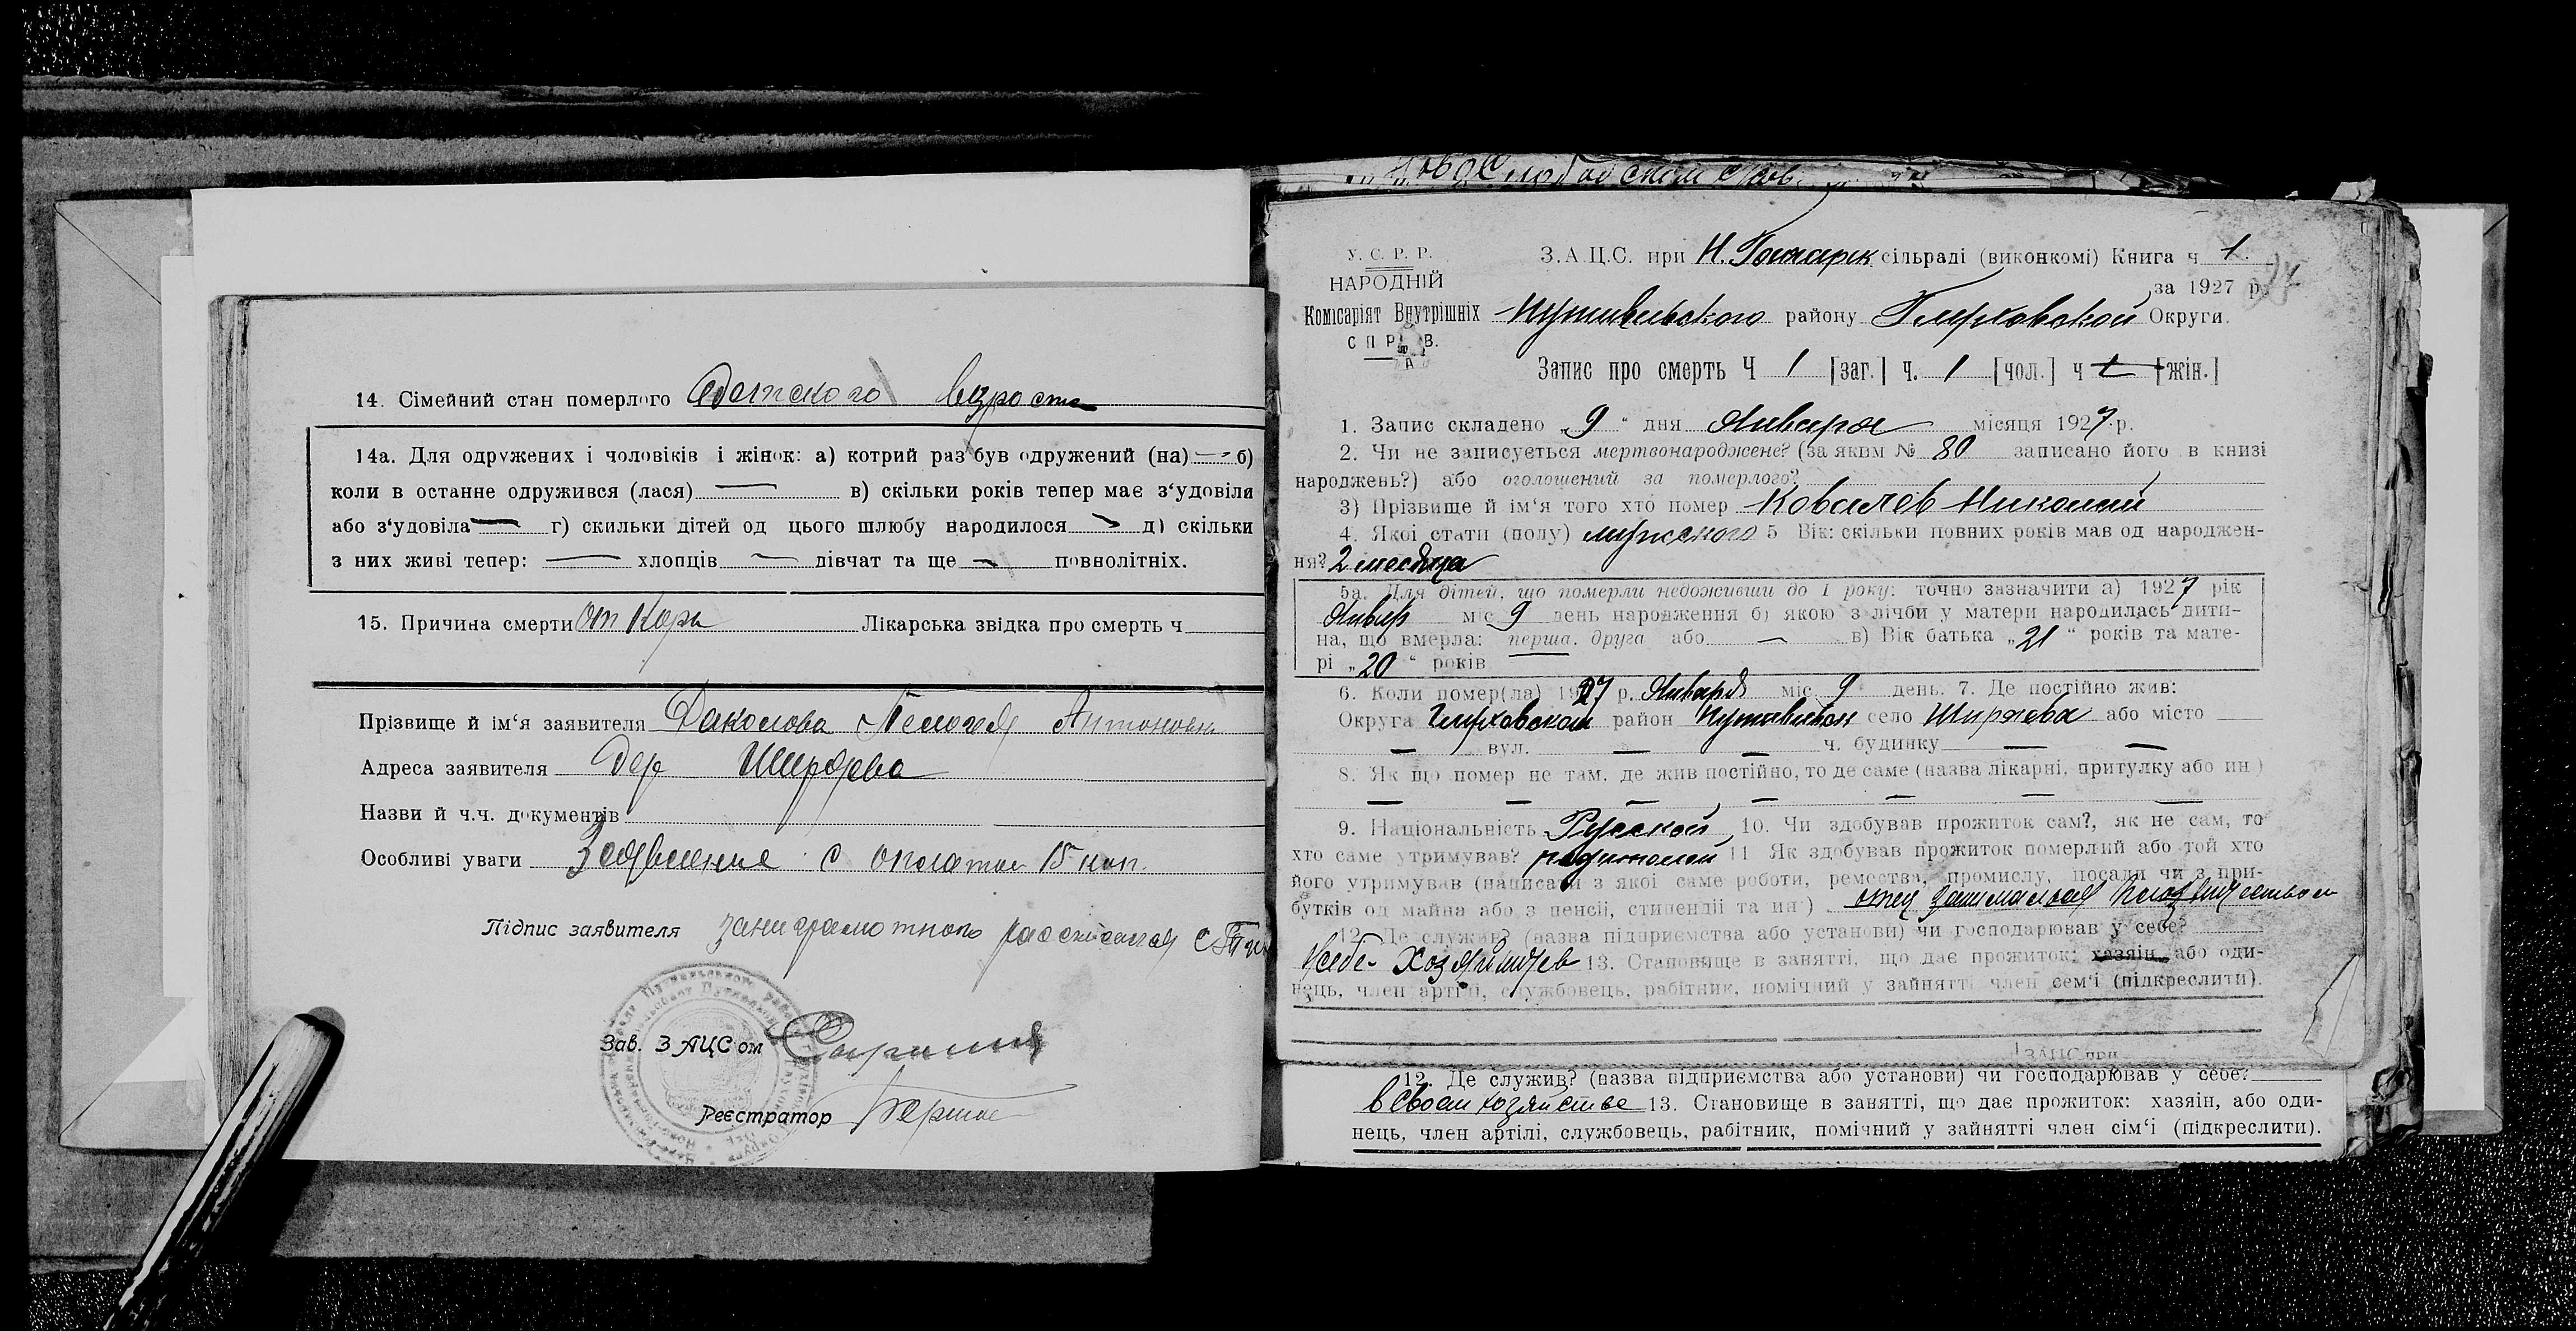 14. Сімейний стан померлого Детского возраста
14а. Для одружених і чоловіків і жінок: а) котрий раз був одружений (на) — б)
коли в останне одружився (лася) — в) скільки років тепер має з‘удовіли
або з‘удовіла — г) скильки дітей од цього шлюбу народилося — д) скільки
з них живі тепер: — хлопців — дівчат та ще — повнолітніх.
15. Причина смерти от Кори Лікарська звідка про смерть ч
Прізвище й ім‘я заявителя Антоновна
Адреса заявителя дер Ширяева
Назви й ч.ч. документів
Особливі уваги Заявление с оплатой 15 коп.
Підпис заявителя за неграмотного расписался
Зав. ЗАЦСом
Реєстратор
У. С. Р. Р.
НАРОДНІЙ
Комісаріят Внутрішніх
СПРАВ.
З.А.Ц.С. при Н. Гончарск сільраді (виконкомі) Книга ч 1.
за 1927 р.
Путивльского району Глуховской Округи.
Запис про смерть Ч 1 [заг.] ч. 1 [чол.] ч [жін.]
1. Запис складено „9“ дня Января місяця 1927 р.
2. Чи не записується мертвонароджене? (за яким № 80 записано його в книзі
народжень?) або оголошений за померлого?
3) Прізвище й ім‘я того хто помер Ковалев Николай
4. Якої стати (полу) мужского 5 Вік: скільки повних років мав од народжен-
ня? 2 месяца
5а. Для дітей, що померли недоживши до 1 року: точно зазначити а) 1927 рік
Январ міс 9 день народження б) якою з лічби у матери народилась дити-
на, що вмерла: перша, друга або — в) Вік батька „21“ років та мате-
рі „20“ років
6. Коли помер(ла) 1927 р. Января міс. 9 день. 7. Де постійно жив:
Округа Глуховской район Путивльск село Ширяева або місто —
— вул. — ч. будинку —
8. Як що помер не там, де жив постійно, то де саме (назва лікарні, притулку або ин)
9. Національність Русской 10. Чи здобував прожиток сам?, як не сам, то
хто саме утримував? родителей 11 Як здобував прожиток померлий або той хто
його утримував (написати з якої саме роботи, ремества, промислу, посади чи з при-
бутків од майна або з пенсії, стипендії та ин) отец занимался
12. Де служив? (назва підприємства або установи) чи господарював у себе?
13. Становище в занятті, що дає прожиток: хазяін, або оди-
нець, член артілі, службовець, рабітник, помічний у зайнятті член сем‘ї (підкреслити).
ЗАЦС при
12. Де служив? (назва підприємства або установи) чи господарював у себе?
в своем хозяйстве 13. Становище в занятті, що дає прожиток: хазяін, або оди-
нець, член артілі, службовець, рабітник, помічний у зайнятті член сім‘ї (підкреслити).